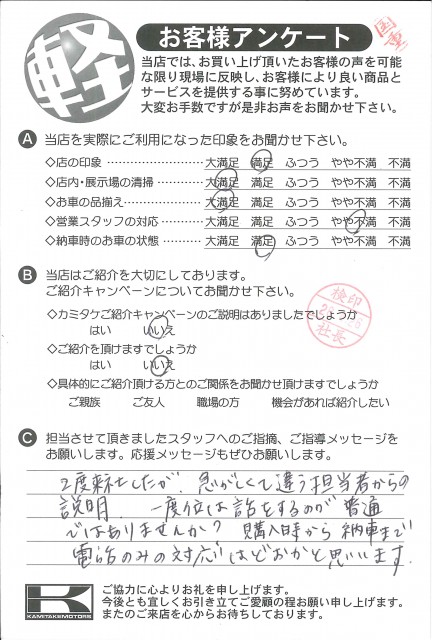 軽
お客様アンケート
当店では、お買い上げ頂いたお客様の声を可能
な限り現場に反映し、お客様により良い商品と
サービスを提供する事に努めています。
大変お手数ですが是非お声をお聞かせ下さい。
A 当店を実際にご利用になった印象をお聞かせ下さい。
◇店の印象 大満足 満足 ふつう やや不満 不満
◇店内・展示場の清掃 大満足 満足 ふつう やや不満 不満
◇お車の品揃え 大満足 満足 ふつう やや不満 不満
◇営業スタッフの対応 大満足 満足 ふつう やや不満 不満
◇納車時のお車の状態 大満足 満足 ふつう やや不満 不満
B 当店はご紹介を大切にしております。
ご紹介キャンペーンについてお聞かせ下さい。
◇カミタケご紹介キャンペーンのご説明はありましたでしょうか
はい いいえ
◇ご紹介を頂けますでしょうか
はい いいえ
検印
社長
◇具体的にご紹介頂ける方とのご関係をお聞かせ頂けますでしょうか
ご親族 ご友人 職場の方 機会があれば紹介したい
C 担当させて頂きましたスタッフへのご指摘、ご指導メッセージを
お願いします。応援メッセージもぜひお願いします。
2度来社したが、急がしくて違う担当者からの
説明。一度位は話をするのが普通
ではありませんか？ 購入時から納車まで
電話のみの対応はどおかと思います。
KAMITAKEMOTORS
ご協力に心よりお礼を申し上げます。
今後とも宜しくお引き立てご愛顧の程お願い申し上げます。
またのご来店を心からお待ちしております。